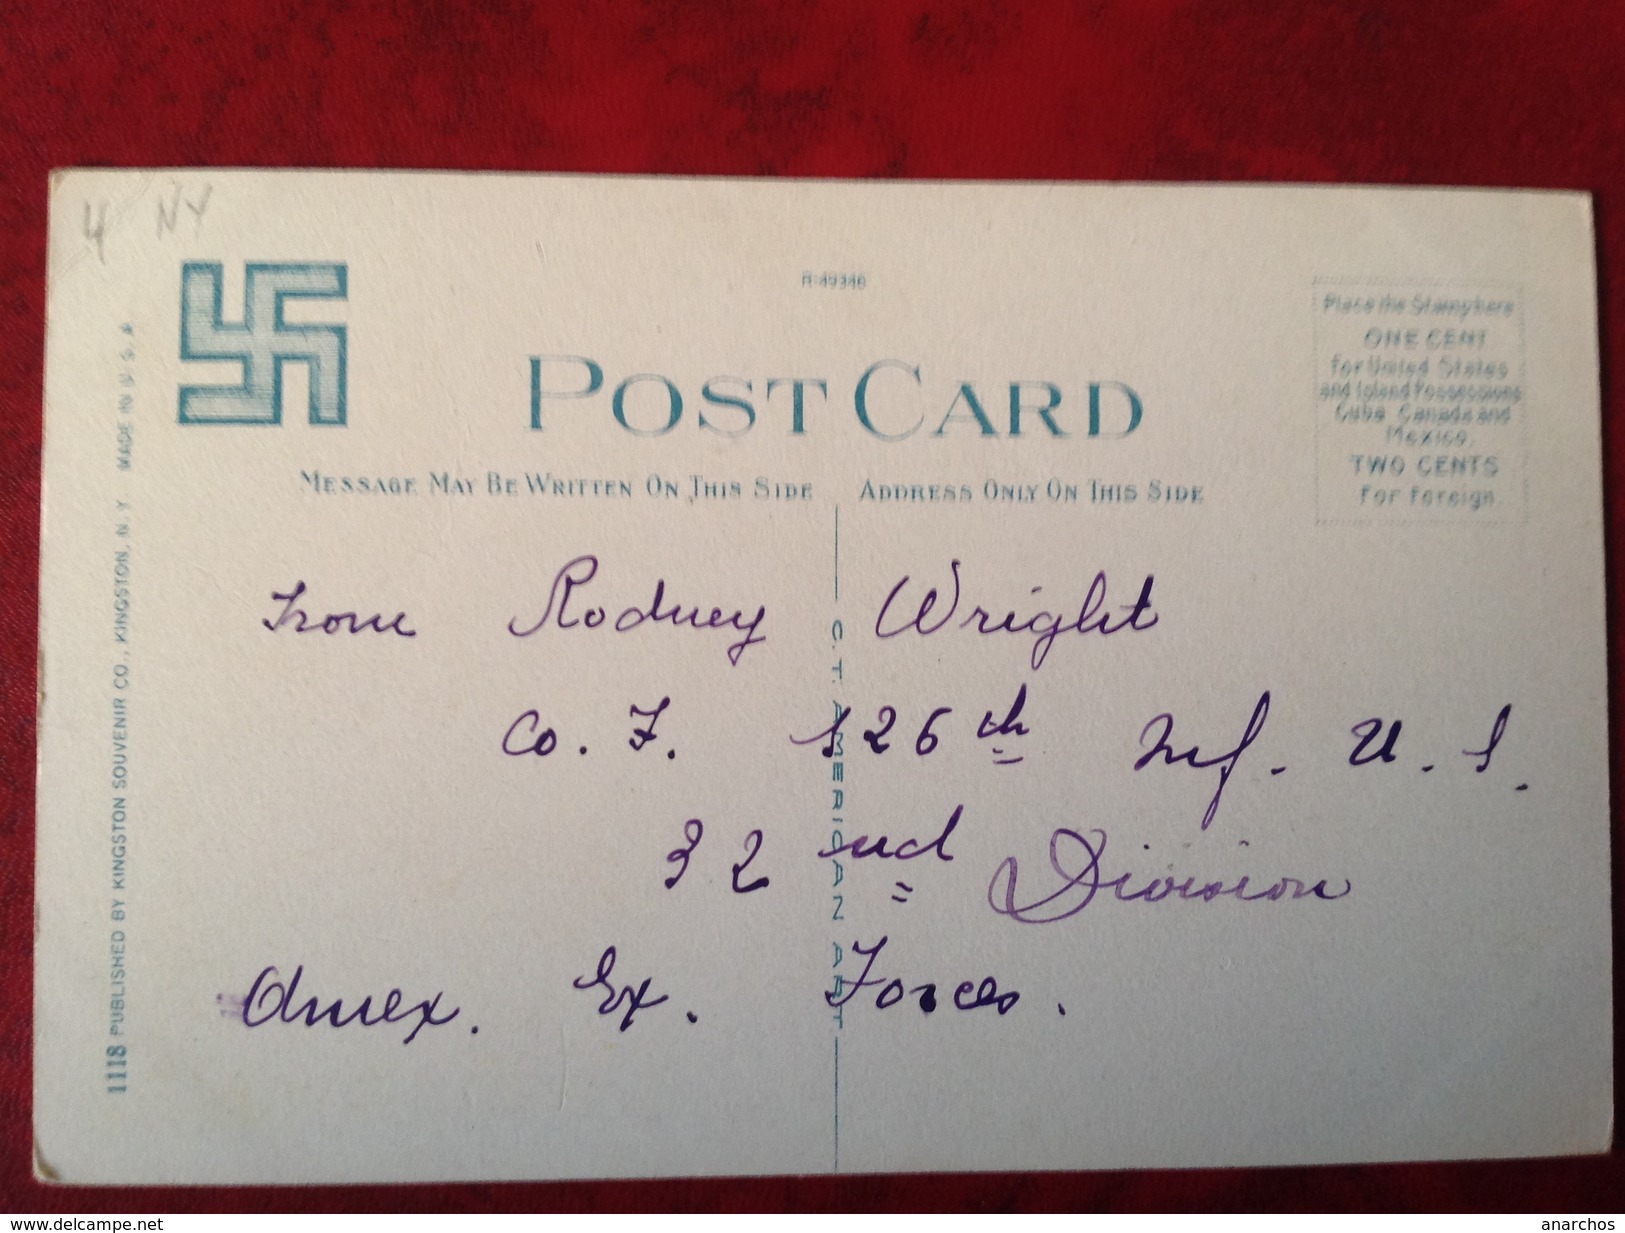 4 NY
R-49346
POST CARD
MESSAGE MAY BE WRITTEN ON THIS SIDE
ADDRESS ONLY ON THIS SIDE
Place the Stamp here
ONE CENT
for United States
and Island Possessions
Cuba Canada and
Mexico.
TWO CENTS
For Foreign
From Rodney Wright
Co. F. 126th Inf. U. S.
32nd Division
Amex. Ex. Forces.
C. T. AMERICAN ART
1118 PUBLISHED BY KINGSTON SOUVENIR CO., KINGSTON, N. Y MADE IN U. S. A
www.delcampe.net
anarchos